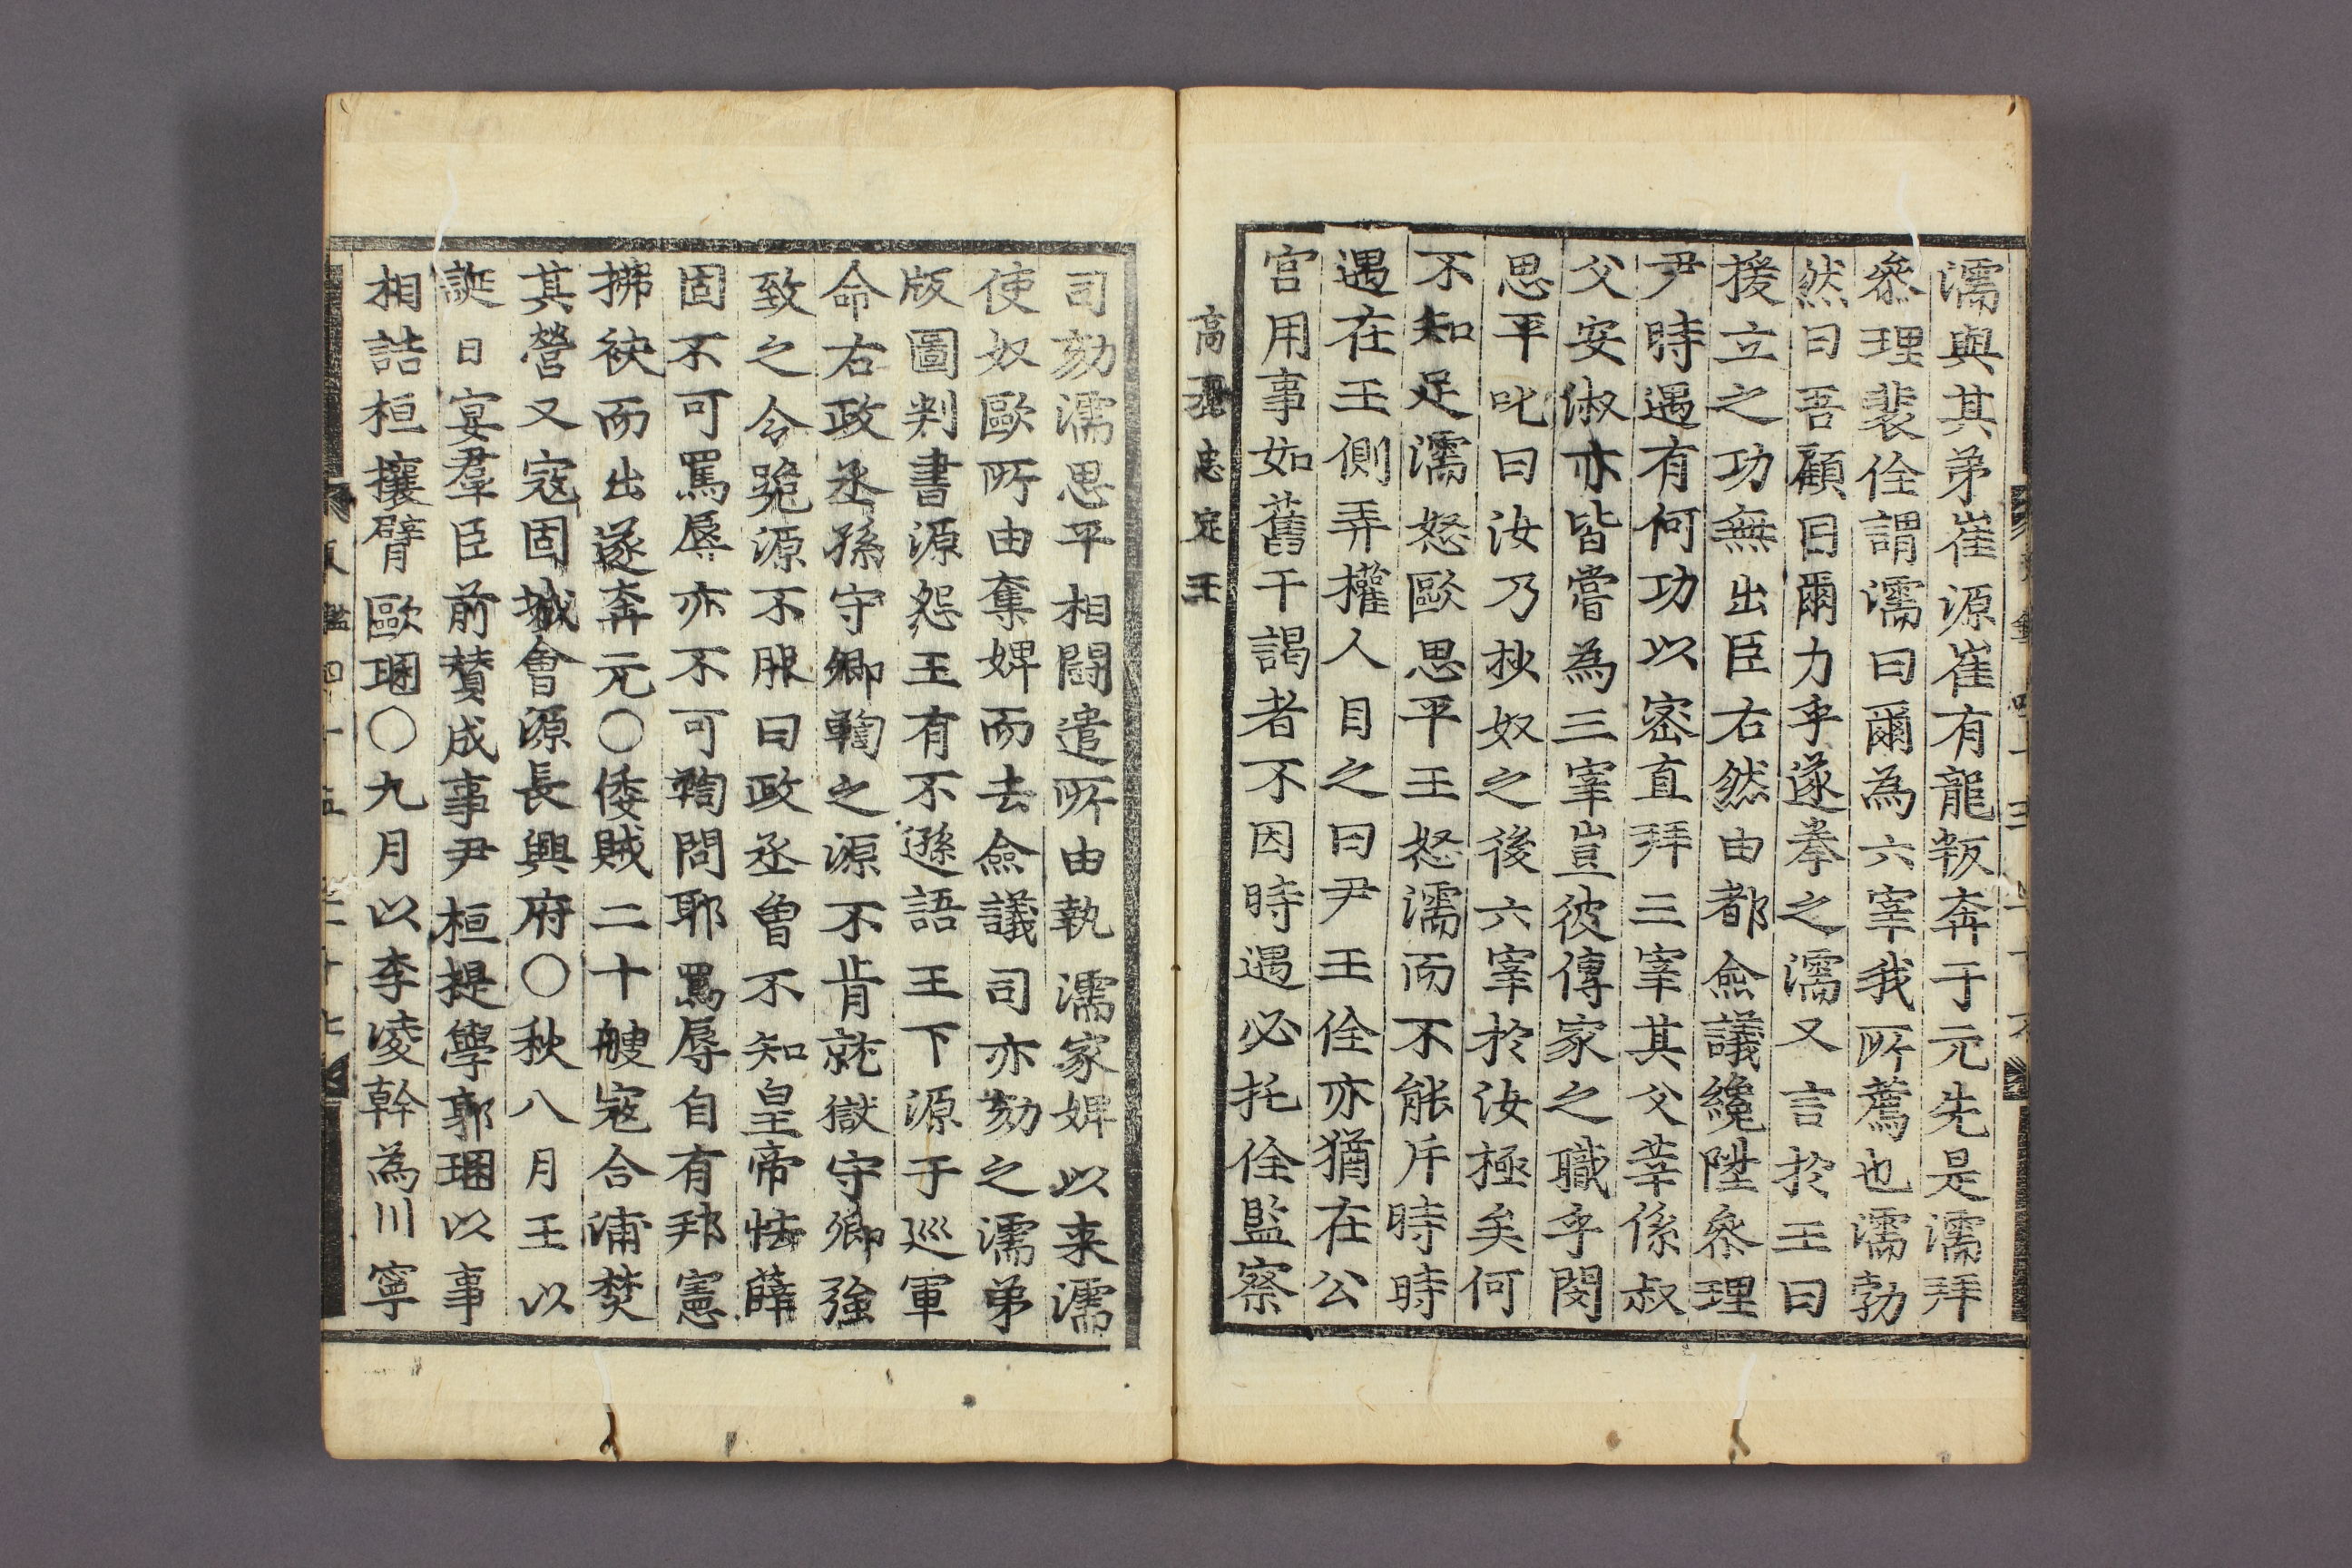 濡與其弟崔源崔有龍叛奔于元先是濡拜
叅理裴佺謂濡曰爾為六宰我所薦也濡勃
然曰吾顧因爾力乎遂拳之濡又言於王曰
援立之功無出臣右然由都僉議纔陞叅理
尹時遇有何功以密直拜三宰其父莘係叔
父安淑亦皆嘗為三宰豈彼傳家之職乎閔
思平叱曰汝乃抄奴之後六宰於汝極矣何
不知足濡怒歐思平王怒濡而不能斥時時
遇在王側弄權人目之曰尹王佺亦猶在公
宮用事如舊干謁者不因時遇必托佺監察
高麗忠定王
司劾濡思平相鬪遣所由執濡家婢以来濡
使奴歐所由奪婢而去僉議司亦劾之濡弟
版圖判書源怨王有不遜語王下源于巡軍
命右政丞孫守卿鞫之源不肯就獄守卿強
致之令跪源不服曰政丞曾不知皇帝怯薛
固不可罵辱亦不可鞫問耶罵辱自有邦憲
拂袂而出遂奔元〇倭賊二十艘寇合浦焚
其營又寇固城會源長興府〇秋八月王以
誕日宴羣臣前贊成事尹桓提學郭珚以事
相詰桓攘臂歐珚〇九月以李凌幹為川寧